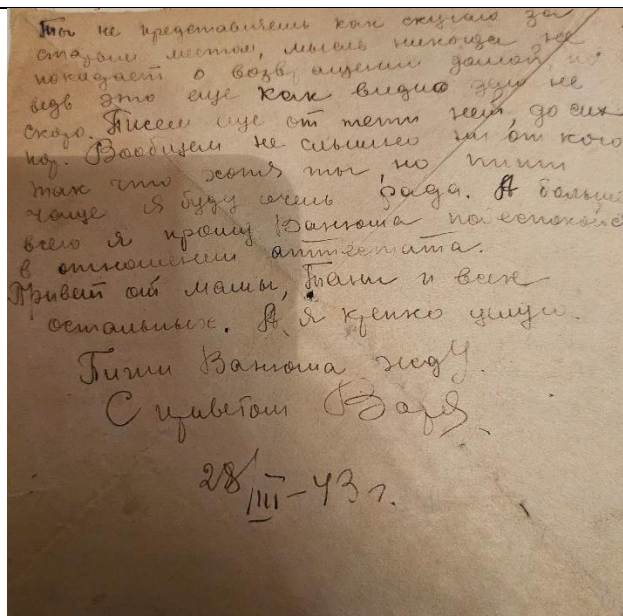 Ты не представляешь как скучаю за
старым местом, мысль никогда не
покидает о возвращении домой, но
ведь это еще как видно это не
скоро. Писем еще от тети нет, до сих
пор. Вообщем не слышно ни от кого
так что хотя ты, но пиши
чаще я буду очень рада. А больше
всего я прошу Ванюша побеспокойся
в отношении аттестата.
Привет от мамы, Тани и всех
остальных. А я крепко целую.
Пиши Ванюша жду.
С приветом Варя.
28/III-43 г.